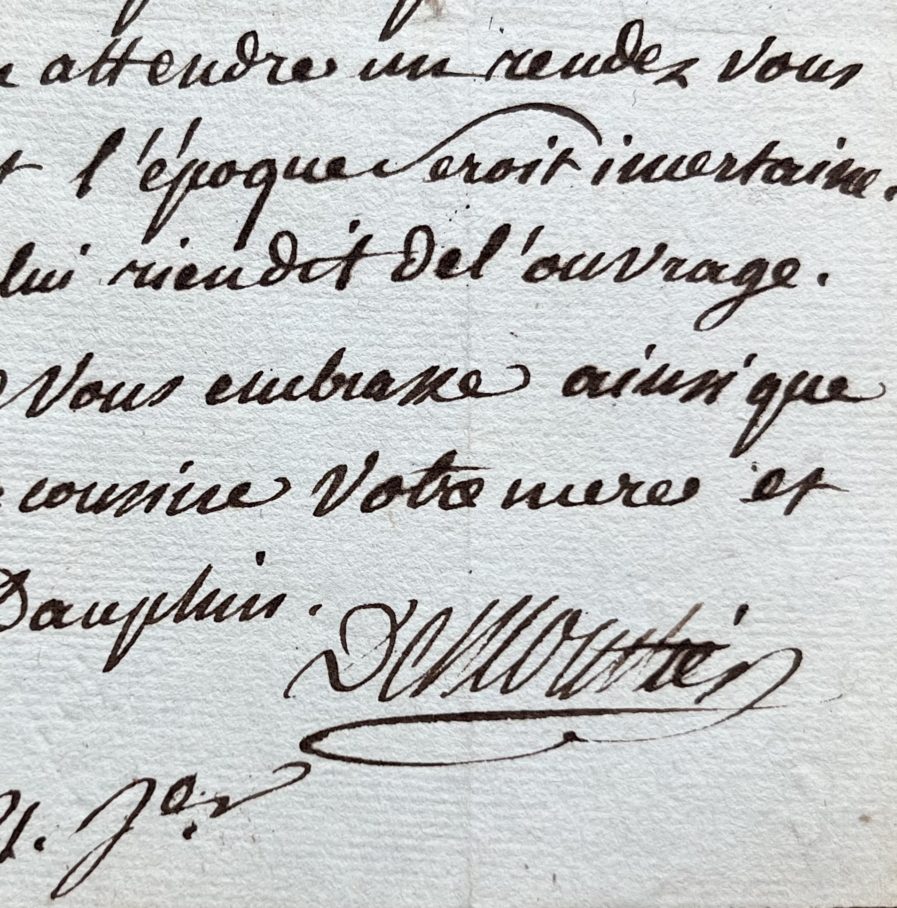 attendre un rendez vous
l'époque seroit incertaine.
lui rien dit de l'ouvrage.
Vous embrasse ainsi que
cousine Votre mere et
Dauphin.
Demoustier
Jer